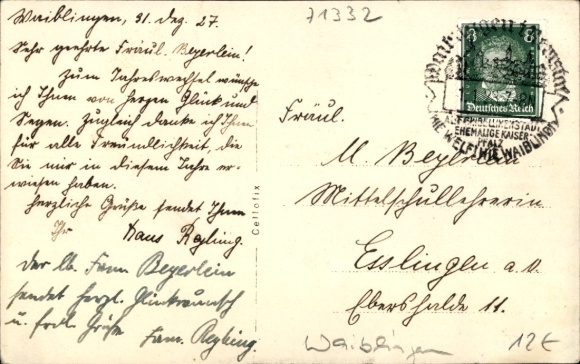 Waiblingen, 31. Dez. 27.
Sehr geehrte Fräul. Beyerlein!
Zum Jahreswechsel wünsche
ich Ihnen von herzen Glück und
Segen. Zugleich danke ich Ihnen
für alle Freundlichkeit, die
Sie mir in diesem Jahre er-
wiesen haben.
Herzliche Grüße sendet Ihnen
Ihr
Hans Regling.
Der lb. Fam. Beyerlein
sendet herzl. Glückwunsch
u. frdl. Grüße Fam. Regling.
Cellofix
71332
8 8
Deutsches Reich
ALTE HOHENSTAUFENSTADT
EHEMALIGE KAISER-
PFALZ
HIE WELF! HIE WAIBLINGEN
Fräul.
M. Beyerlein
Mittelschullehrerin
Esslingen a. N.
Ebershalde 11.
Waiblingen
12€